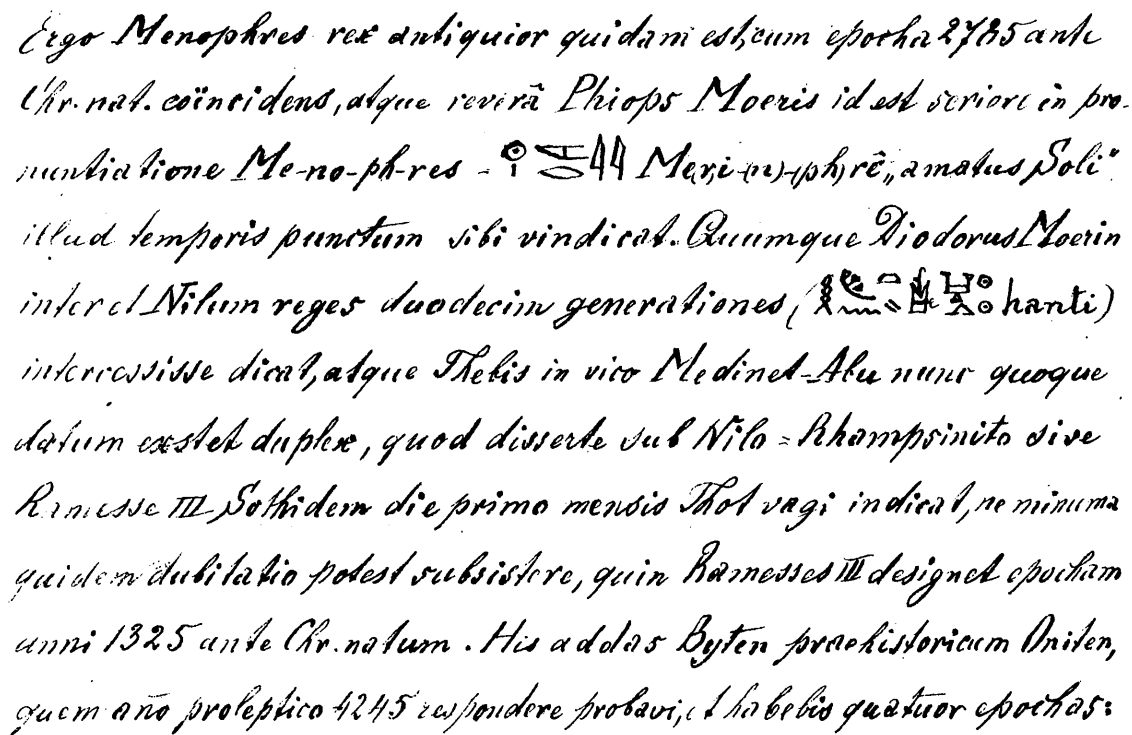 Ergo Menophres rex antiquior quidam est, cum epocha 2785 ante
Chr. nat. coïncidens, atque reverâ Phiops Moeris id est seriore in pro-
nuntiatione Me-no-ph-res - Me(r)i-(n)-(ph)rê „amatus Soli"
illud temporis punctum sibi vindicat. Quumque Diodorus Moerin
inter et Nilum reges duodecim generationes ( hanti)
intercessisse dicat, atque Thebis in vico Medinet-Abu nunc quoque
datum exstet duplex, quod disserte sub Nilo = Rhampsinito sive
Ramesse III Sothidem die primo mensis Thot vagi indicat, ne minuma
quidem dubitatio potest subsistere, quin Ramesses III designet epocham
anni 1325 ante Chr. natum. His addas Byten praehistoricum Oniten,
quem año proleptico 4245 respondere probavi, et habebis quatuor epochas: